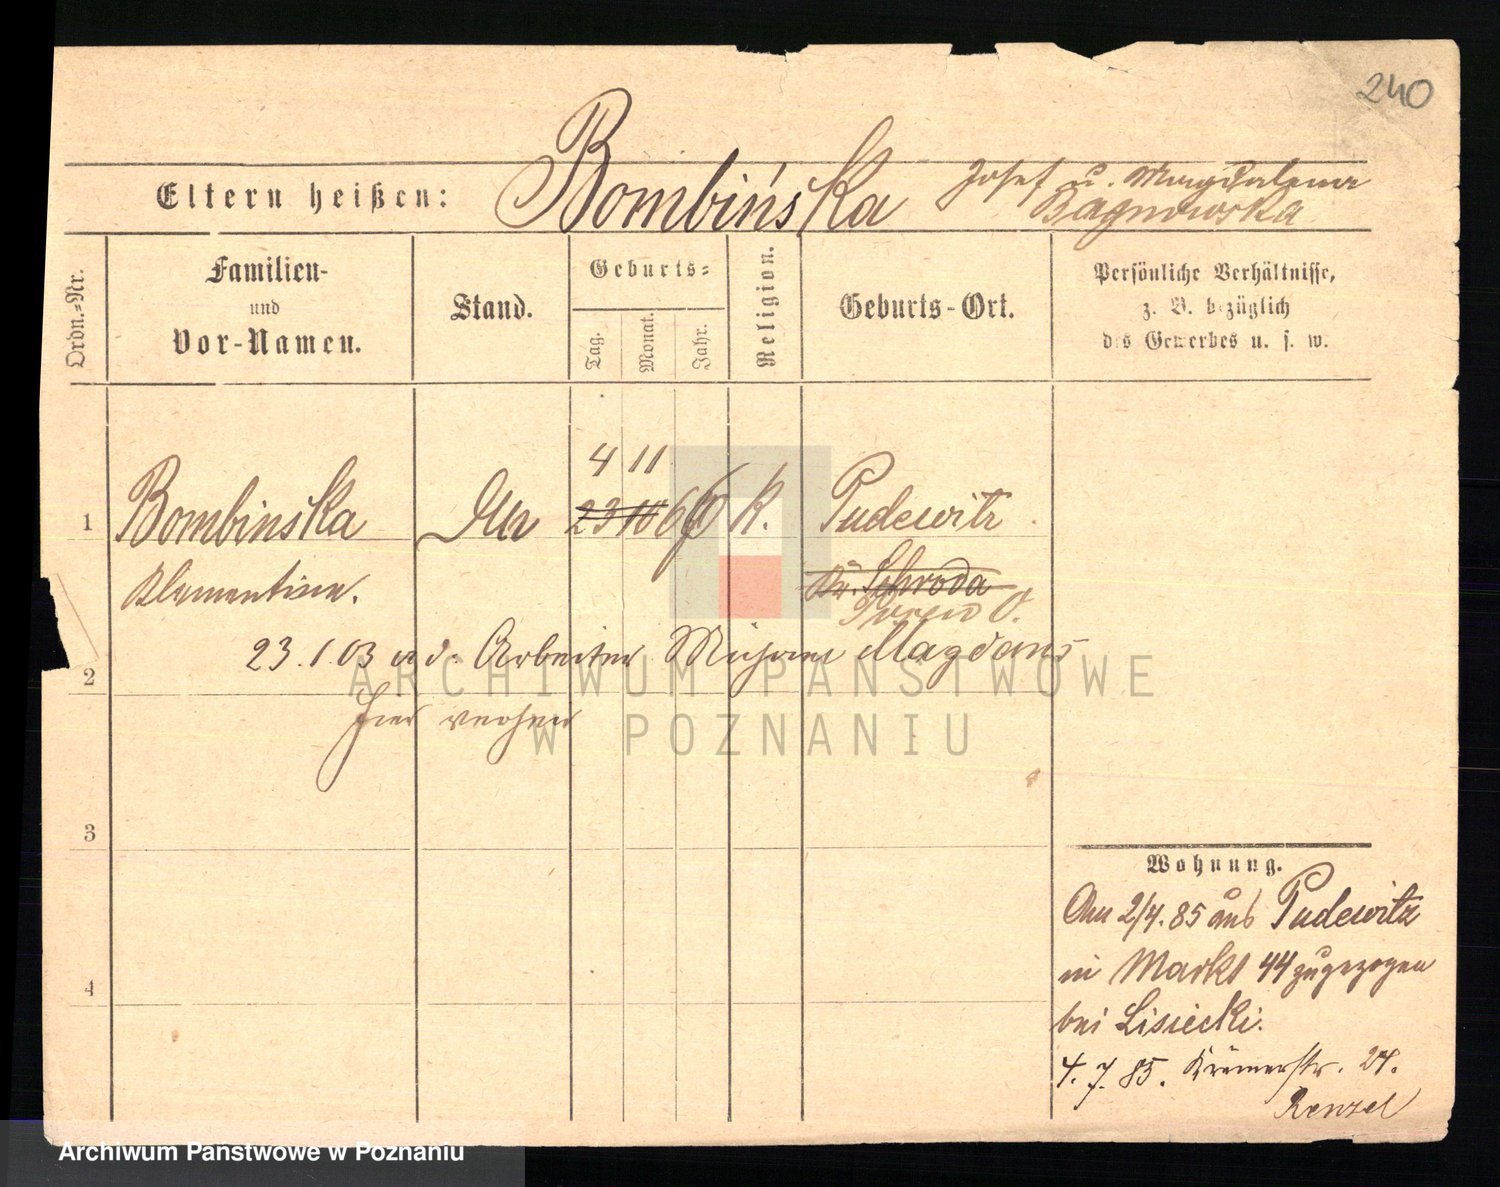 240
Eltern heißen: Bombińska Josef u. Magdalena
Bagnowska
Ordn.-Nr.
Familien-
und
Vor-Namen.
Stand.
Geburts-
Tag.
Monat.
Jahr.
Religion.
Geburts-Ort.
Persönliche Verhältnisse,
z. B. bezüglich
des Gewerbes u. s. w.
4 11
1 Bombinska 23 10 66 K. Pudewitz
Klementine. Kr. Schroda
Posen O.
23.1.03 Arbeiter
2
hier
3
4
Wohnung.
Am 2/4.85 aus Pudewitz
in Markt 44 zugezogen
bei Lisiecki.
4.7.85. Krämerstr. 24.
Renzel
ARCHIWUM PAŃSTWOWE
W POZNANIU
Archiwum Państwowe w Poznaniu